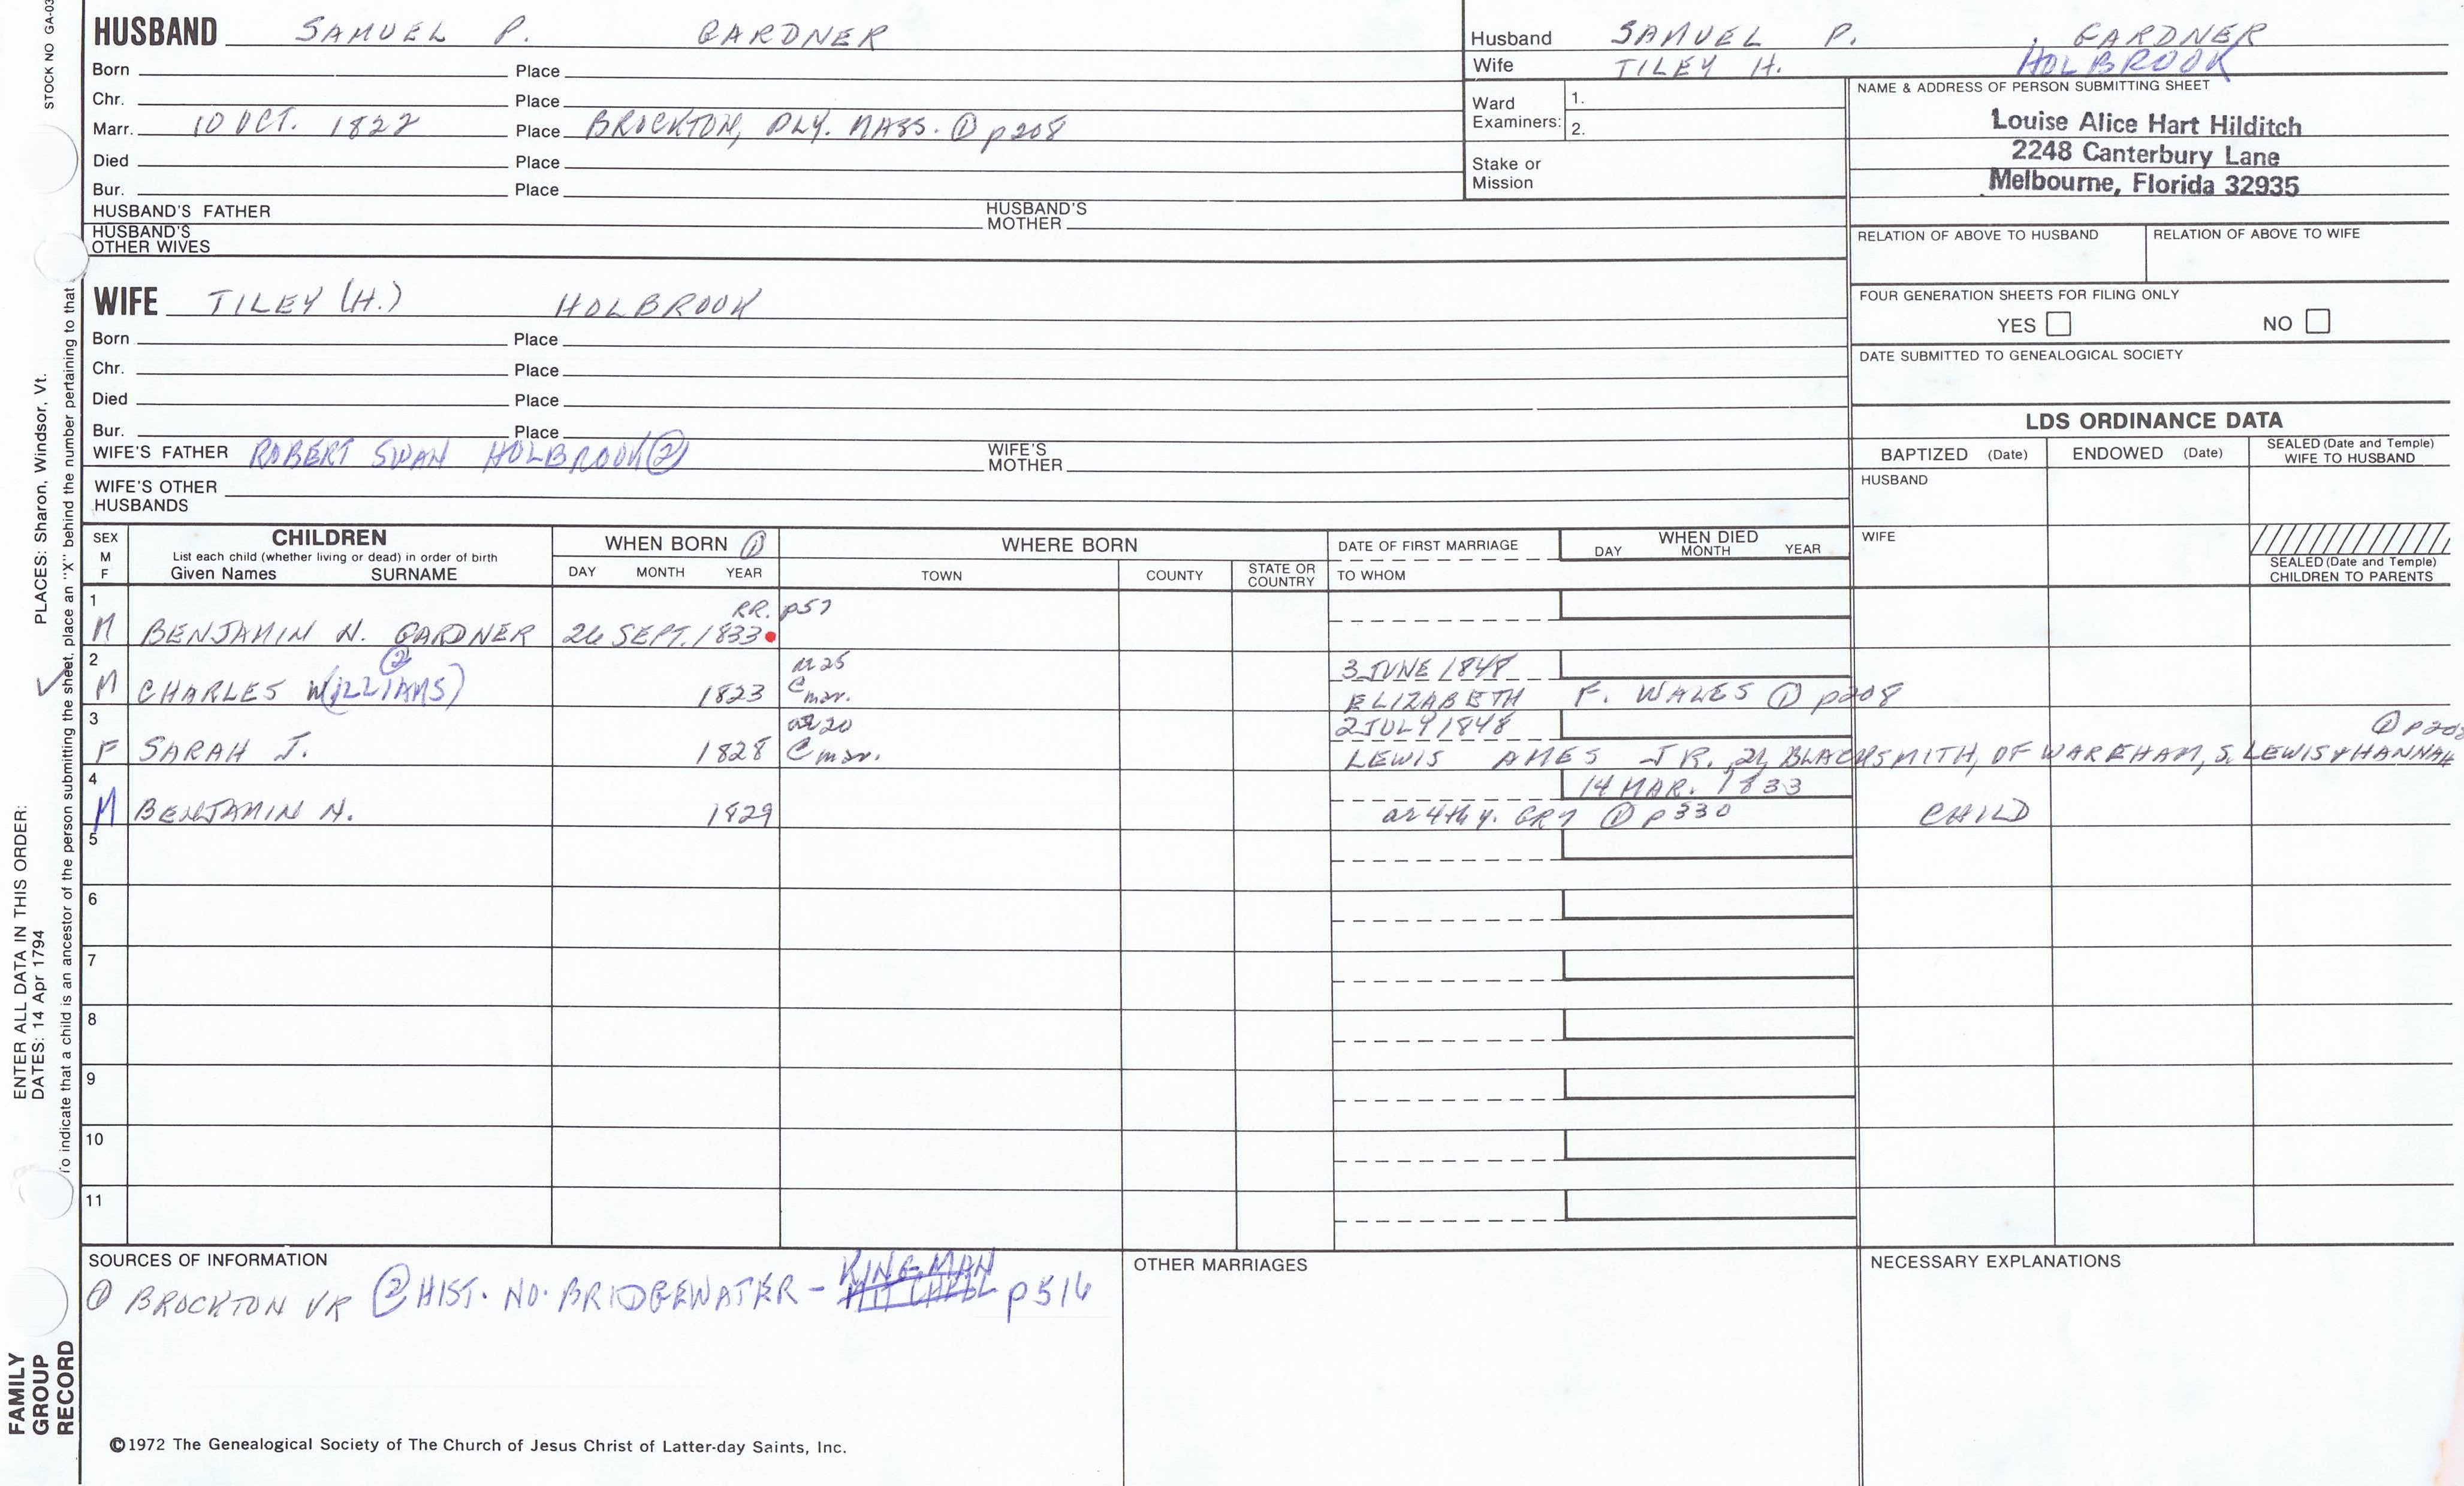 STOCK NO GA-03
HUSBAND SAMUEL P. GARDNER
Born Place
Chr. Place
Marr. 10 OCT. 1822 Place BROCKTON, PLY. MASS. ① p208
Died Place
Bur. Place
HUSBAND'S FATHER HUSBAND'S MOTHER
HUSBAND'S OTHER WIVES
Husband SAMUEL P. GARDNER
Wife TILEY H. HOLBROOK
Ward Examiners: 1.
2.
Stake or Mission
NAME & ADDRESS OF PERSON SUBMITTING SHEET
Louise Alice Hart Hilditch
2248 Canterbury Lane
Melbourne, Florida 32935
RELATION OF ABOVE TO HUSBAND RELATION OF ABOVE TO WIFE
FOUR GENERATION SHEETS FOR FILING ONLY
YES NO
DATE SUBMITTED TO GENEALOGICAL SOCIETY
WIFE TILEY (H.) HOLBROOK
Born Place
Chr. Place
Died Place
Bur. Place
WIFE'S FATHER ROBERT SWAN HOLBROOK ② WIFE'S MOTHER
WIFE'S OTHER HUSBANDS
LDS ORDINANCE DATA
BAPTIZED (Date) ENDOWED (Date) SEALED (Date and Temple) WIFE TO HUSBAND
HUSBAND
WIFE
SEALED (Date and Temple) CHILDREN TO PARENTS
SEX M F
CHILDREN
List each child (whether living or dead) in order of birth
Given Names SURNAME
WHEN BORN ①
DAY MONTH YEAR
WHERE BORN
TOWN COUNTY STATE OR COUNTRY
DATE OF FIRST MARRIAGE
TO WHOM
WHEN DIED
DAY MONTH YEAR
1 RR. p57
M BENJAMIN N. GARDNER 26 SEPT. 1833
2 ② ae 25 3 JUNE 1848
M CHARLES W(ILLIAMS) 1823 @ mar. ELIZABETH F. WALES ① p208
3 ae 20 2 JULY 1848 ① p208
F SARAH J. 1828 @ mar. LEWIS AMES JR. 24 BLACKSMITH, OF WAREHAM, S. LEWIS & HANNAH
4 14 MAR. 1833
M BENJAMIN N. 1829 ae 4th y. GR7 ① p330 CHILD
5
6
7
8
9
10
11
SOURCES OF INFORMATION
① BROCKTON VR ② HIST. NO. BRIDGEWATER - KINGMAN MITCHELL p516
OTHER MARRIAGES
NECESSARY EXPLANATIONS
©1972 The Genealogical Society of The Church of Jesus Christ of Latter-day Saints, Inc.
ENTER ALL DATA IN THIS ORDER:
DATES: 14 Apr 1794 PLACES: Sharon, Windsor, Vt.
To indicate that a child is an ancestor of the person submitting the sheet, place an "X" behind the number pertaining to that
FAMILY
GROUP
RECORD